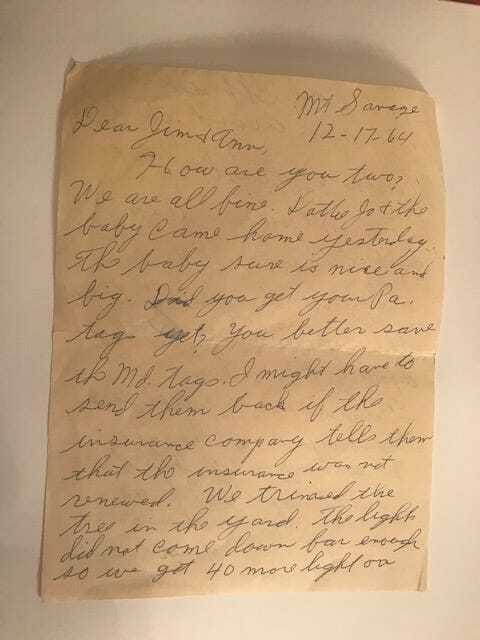 Mt Savage
12-17-64
Dear Jim & Ann,
How are you two?
We are all fine. Kathe Jo & the
baby came home yesterday.
Th baby sure is nice and
big. Did you get your Pa.
tags yet, You better save
th Md. tags. I might have to
send them back if the
insurance company tells them
that the insurance was not
renewed. We trimed the
tree in the yard. The lights
did not come down far enough
so we got 40 more light on